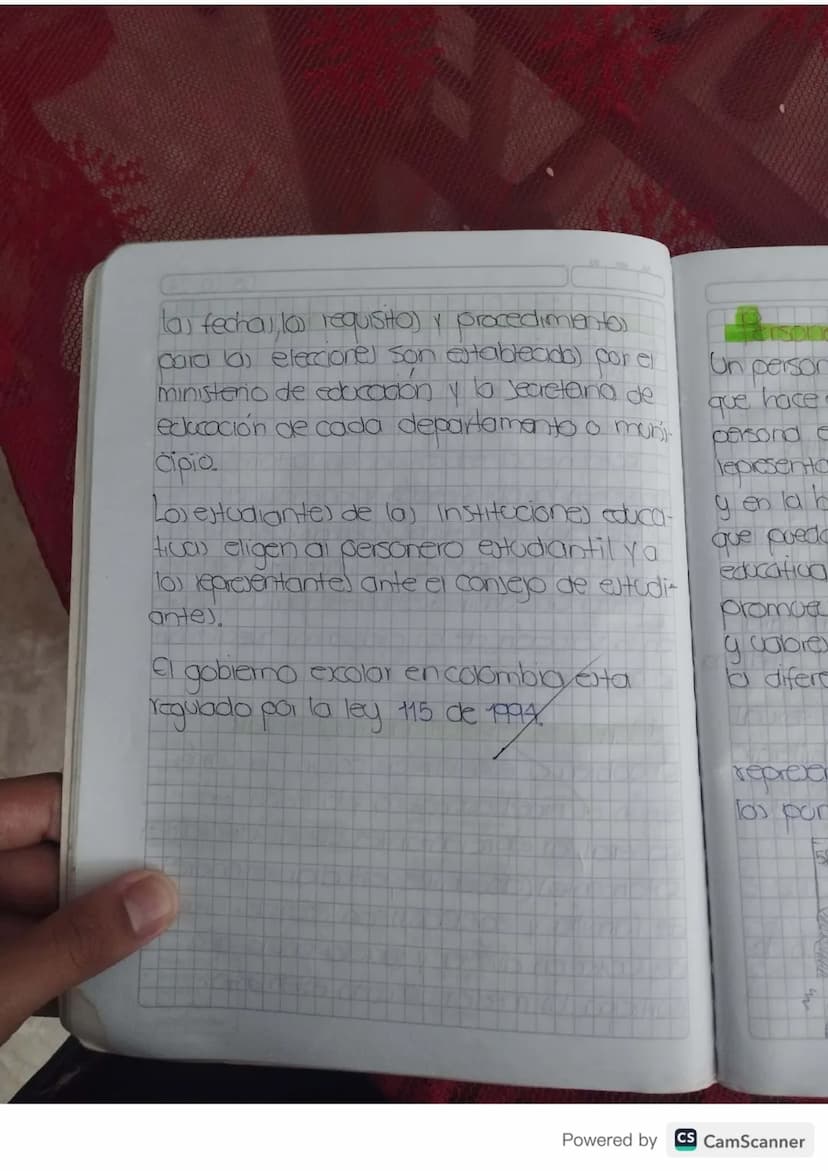 las fechas, los requisitos y procedimientos
para las elecciones son establecidos por el
ministerio de educación y la secretaria de
educación de cada departamento o muni-
cipio.
Los estudiantes de las instituciones educa-
tivas eligen al personero estudiantil y a
los representantes ante el consejo de estudi-
antes.
El gobierno excolar en colombia esta
regulado por la ley 115 de 1994.
Persone
Un person
que hace
persona e
representa
y en la
que pueda
educativa
promue
y valores
la difere
represen
los par
Powered by CS CamScanner